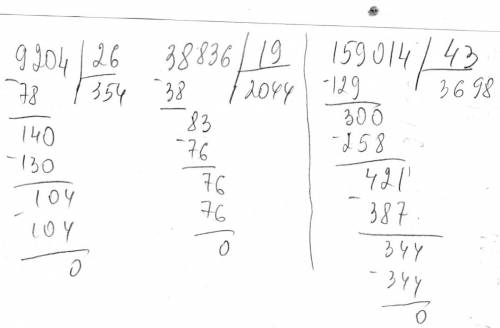 9204 | 26
-78 354
140
-130
104
-104
0
38836 | 19
-38 2044
83
-76
76
76
0
159014 | 43
-129 3698
300
-258
421
-387
344
-344
0